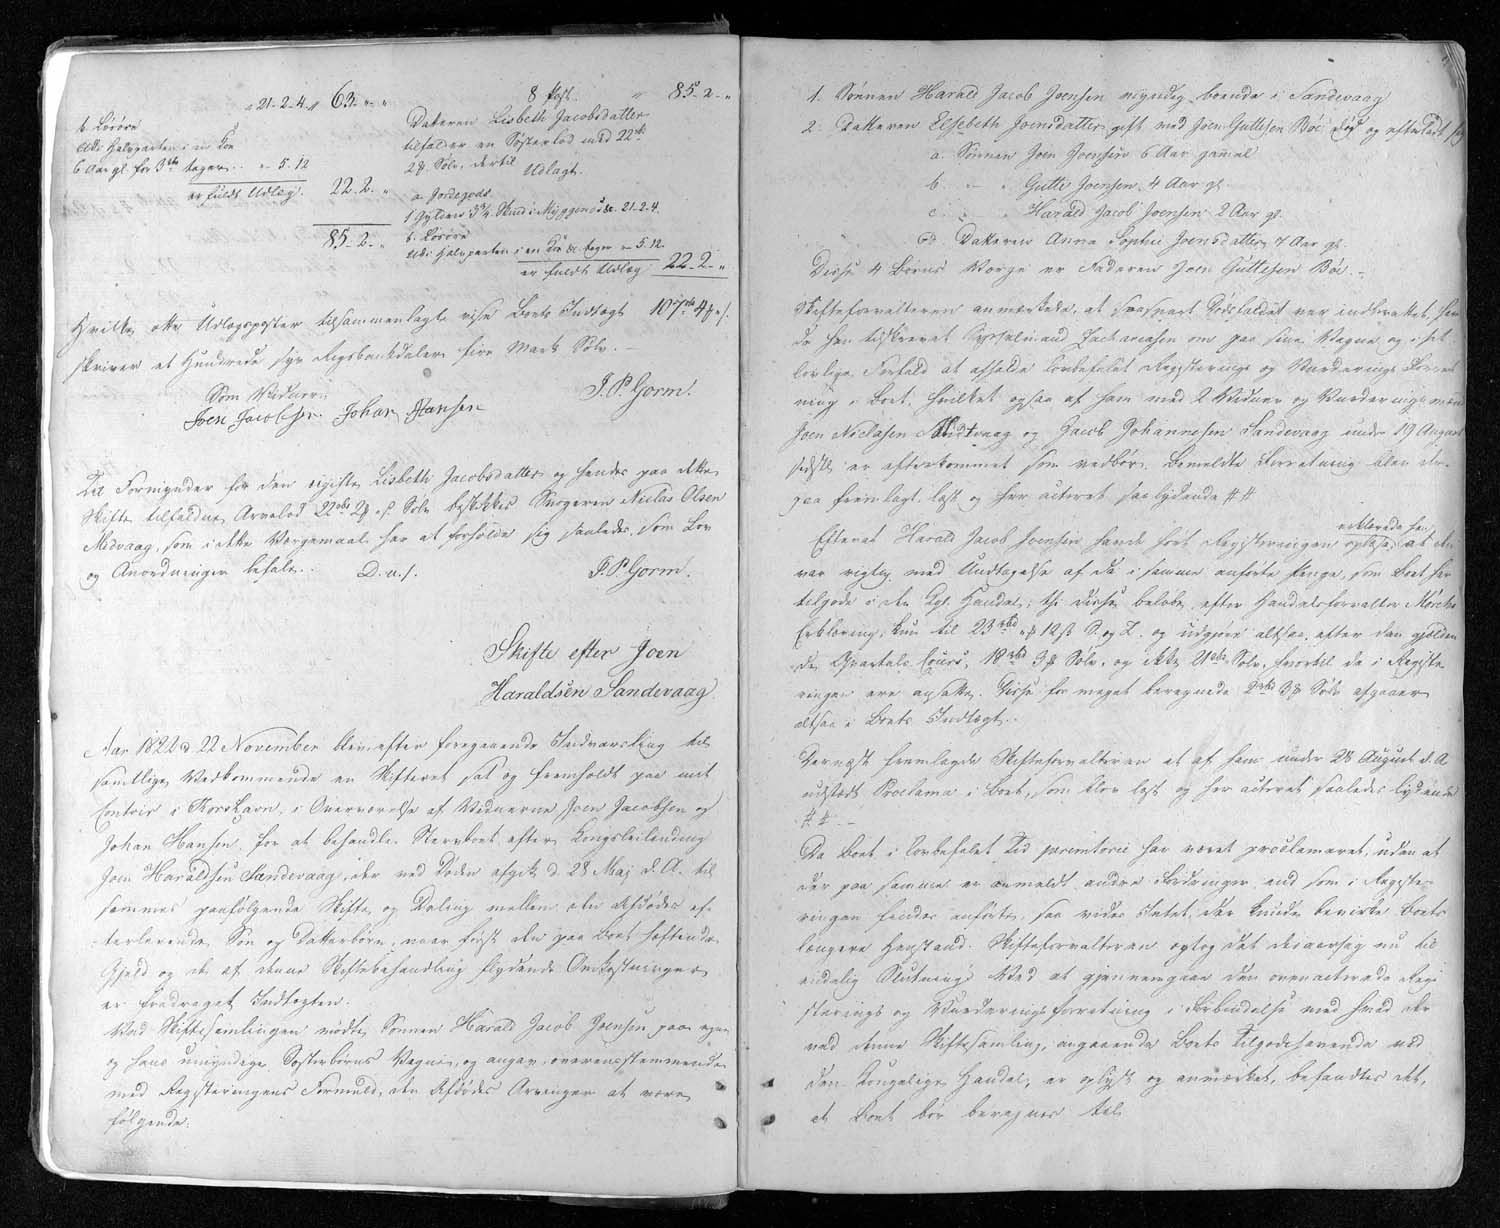 " 21-2-4 " 63 - " - "
b. Løsøre
Udi Halvparten i en Koe
6 Aar gl. for 3die tagen . . " 5. 12
er fuldt Udlæg. 22. 2. "
85. 2. "
8 Post. " 85. 2. "
Datteren Lisbeth Jacobsdatter
tilfalder en Søsterlod med 22 rb
2 ₰ Sølv, dertil
Udlagt.
a. Jordegods
1 Gylden 3¾ Skind i Myggenæs &c. 21-2-4.
b. Løsøre
Udi Halvparten i en Koe &c. tagen " 5. 12
er fuldt Udlæg 22 - 2 - "
Hvilke otte Udlægsposter tilsammenlagte vise Boets Indtægt 107 rb 4 ₰ s.
skriver et Hundrede syv Rigsbankdaler fire Mark Sølv. —
Som Vidner:
Joen Jacobsen. Johan Hansen
J. P. Gorm.
Til Formynder for den ugifte Lisbeth Jacobsdatter og hendes paa dette
Skifte tilfaldne Arvelod 22 rb 2 ₰ s. Sølv beskikkes Svogeren Niclas Olsen
Midvaag, som i dette Værgemaal har at forholde sig saaledes, som Lov
og Anordninger befale.
D. u. s. J. P. Gorm.
Skifte efter Joen
Haraldsen Sandevaag.
Aar 1822 d. 22 November blev efter foregaaende Indvarsling til
samtlige Vedkommende en Skifteret sat og fremholdt paa mit
Contoir i Thorshavn, i Overværelse af Vidnerne Joen Jacobsen og
Johan Hansen, for at behandle Stervboet efter Kongsleilænding
Joen Haraldsen Sandevaag, der ved Døden afgik d. 28 Maj d. A. til
sammes paafølgende Skifte og Deling mellem den Afdødes ef-
terlevende Søn og Datterbørn, naar først den paa Boet hæftende
Gjeld og de af denne Skiftebehandling flydende Omkostninger
er fradraget Indtægten.
Ved Skiftesamlingen mødte Sønnen Harald Jacob Joensen paa egne
og hans umyndige Søsterbørns Vegne, og angav, overensstemmende
med Registeringens Formeld, den Afdødes Arvinger at være
følgende.
1. Sønnen Harald Jacob Joensen myndig boende i Sandevaag
2. Datteren Elsebeth Joensdatter gift med Joen Guttesen Bøe, død og efterladt sig
a. Sønnen Joen Joensen 6 Aar gammel
b. " " Gutte Joensen, 4 Aar gl.
c. " " Harald Jacob Joensen 2 Aar gl.
d. Datteren Anna Sophie Joensdatter, 7 Aar gl.
Disse 4 Børns Værge er Faderen Joen Guttesen Bøe. —
Skifteforvalteren anmærkede, at saasnart Dødsfaldet var indberettet, hav-
de han tilskrevet Sysselmand Zachariasen om paa sine Vegne og i sit
lovlige Forfald at afholde lovbefalet Registerings og Vurderings Forret-
ning i Boet, hvilket ogsaa af ham med 2 Vidner og Vurderingsmænd
Joen Niclasen Midvaag og Jacob Johannesen Sandevaag under 19 August
sidstl. er efterkommet som vedbør. Bemeldte Forretning blev der-
paa fremlagt, læst og her acteret saa lydende ##
Efterat Harald Jacob Joensen havde hørt Registeringen oplæse, erklærede han, at den
var rigtig med Undtagelse af de i samme anførte Penge, som Boet har
tilgode i den Kgl. Handel; thi disse beløbe, efter Handelsforvalter Mørchs
Erklæring, kun til 23 rbd " ₰ 12 s. S. og T. og udgjøre altsaa, efter den gjælden-
de Qvartals Cours, 18 rbd 3 ₰ Sølv, og ikke 21 rbd Sølv, hvortil de i Registe-
ringen ere opsatte. Disse for meget beregnede 2 rbd 3 ₰ Sølv afgaaer
altsaa i Boets Indtægt.
Dernæst fremlagde Skifteforvalteren et af ham under 28 August d. A.
udstædt Proclama i Boet, som blev læst og her acteret saaledes lydende
## —
Da Boet i lovbefalet Tid peremtorie har været proclameret, uden at
der paa samme er anmeldt andre Fordringer, end som i Registe-
ringen findes anførte, saa vides Intet, der kunde bevirke Boets
længere Henstand. Skifteforvalteren optog det desaarsag nu til
endelig Slutning. Ved at gjennemgaae den ovenacterede Regi-
sterings og Vurderingsforretning i Forbindelse med hvad der
ved denne Skiftesamling, angaaende Boets Tilgodehavende ved
den Kongelige Handel, er oplyst og anmærket, befandtes det,
at Boet bør beregnes til